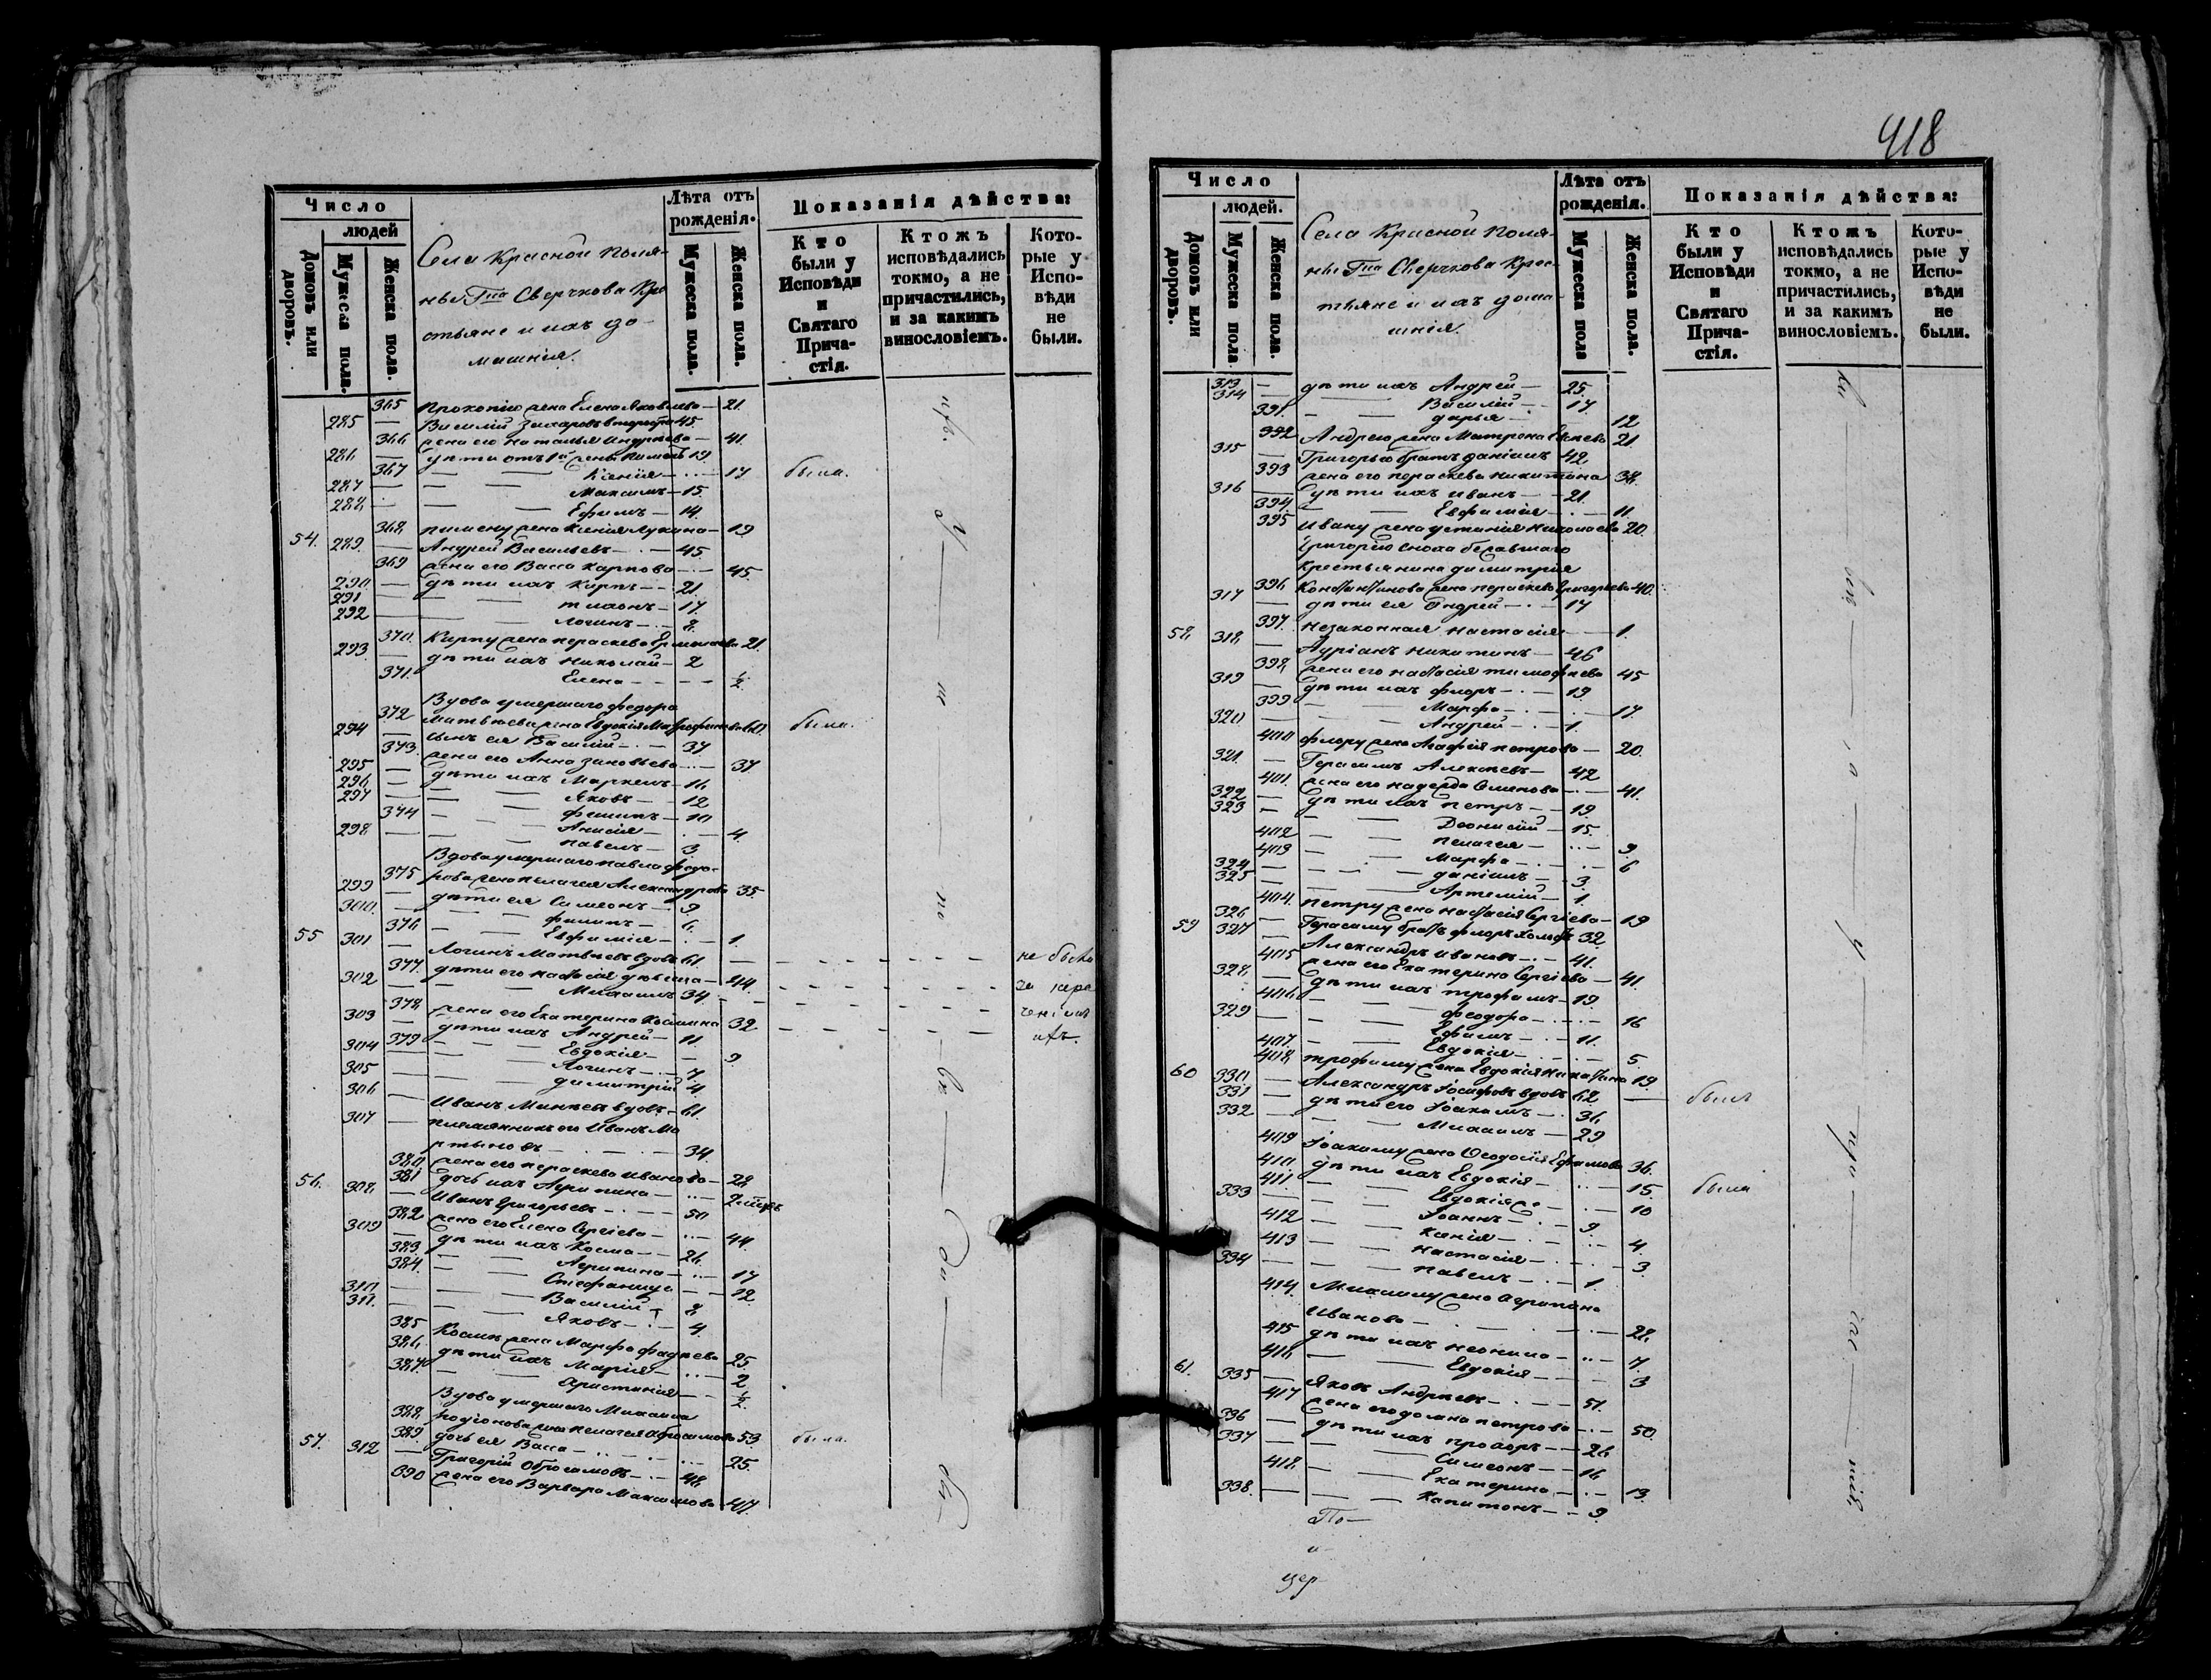 Число
людей
Домовъ или дворовъ.
Мужеска пола.
Женска пола.
Села Красной Поля-
ны Гна Сверчкова Кре
стьяне и ихъ до-
машнія.
Лѣта отъ рожденія.
Мужеска пола.
Женска пола.
Показанія дѣйства:
Кто были у Исповѣди и Святаго Прича-стія.
Ктожъ исповѣдались токмо, а не причастились, и за какимъ винословіемъ.
Кото-рые у Испо-вѣди не были.
365 Прокопію жена Елена Яковлева — 21.
285 — Василій Захаровъ 45
366 жена его Наталья Андреева — 41
286 — дѣти отъ 1й жены Пименъ 19
367 — — Ксенія — 17 была.
287 — — Максимъ — 15.
288 — — Ефимъ — 14.
368 Пимену жена Ксенія Лукина — 19
54. 289. — Андрей Васильевъ — 45
369 жена его Васса Карпова — 45.
290. — дѣти ихъ Карпъ — 21
291 — — Тихонъ — 17.
292 — — Логинъ — 8.
370. Карпу жена Параскева Ермолаева 21.
293 — дѣти ихъ Николай — 2
371. Елена — ½
Вдова умершаго Федора
372 Матвѣева жена Евдокія Митрофанова 60. была.
294 — сынъ ея Василій — 37
373. жена его Анна Зиновьева — 37
295 — дѣти ихъ Маркелъ — 16
296 — — Яковъ — 12
297 — — Филипъ — 10
374 — — Анисія — 4
298 — — Павелъ — 3
Вдова умершаго Павла Федо-
375 рова жена Пелагея Александрова 35.
299 — дѣти ея Симеонъ — 9
300. — — Филипъ — 6.
376 — — Евфимія — 1.
55 301 — Логинъ Матвѣевъ вдовъ 61. — не были
377. дѣти его Настасія дѣвица — 44. —
302 — — Михаилъ 34. —
378. жена его Екатерина Косьмина 32 —
303 — дѣти ихъ Андрей — 11.
379 — — Евдокія — 9
304 — — Логинъ — 7
305 — — Димитрій 4
306 — Иванъ Минѣевъ вдовъ — 61.
307 — племянникъ его Иванъ Ма
ртыновъ — 34.
380 жена его Параскева Иванова — 28
381 дочь ихъ Агрипина —
56. 308. — Иванъ Григорьевъ — 50
382 жена его Елена Сергіева — 44.
309 — дѣти ихъ Косма — 26.
383. — — Агрипина — 17
384. — — Стефанида — 12
310. — — Василій — 8
311. — — Яковъ — 4.
385 Косьмѣ жена Марфа Фадѣева 25.
386 дѣти ихъ Марія — 2
387. — — Христинія — ½
Вдова умершаго Михаила
388 Родіонова жена Пелагея Абросимова 53 была.
389. дочь ея Васса — 25.
57. 312 — Григорій Обросимовъ — 48
390 жена его Варвара Максимова 47.
418
Число
людей.
Домовъ или дворовъ.
Мужеска пола
Женска пола.
Села Красной Поля-
ны Гна Сверчкова Крес-
тьяне и ихъ дома-
шнія.
Лѣта отъ рожденія.
Мужеска пола
Женска пола.
Показанія дѣйства:
Кто были у Исповѣди и Святаго Прича-стія.
Ктожъ исповѣдались токмо, а не причастились, и за какимъ винословіемъ.
Кото-рые у Испо-вѣди не были.
313 — дѣти ихъ Андрей — 25.
314 — Василій — 17.
391. — — Дарья — 12
392 Андрею жена Матрона 21
315 — Григорью братъ Даніилъ 42.
393 жена его Параскева Никитина 38.
316 — дѣти ихъ Иванъ — 21.
394. — — Евфимія — 11
395 Ивану жена Устинія Николаева 20.
Григорію сноха бежавшаго
крестьянина Димитрія
396 Константинова жена Параскева Григорьева 40.
317 — дѣти ея Андрей — 17
397. незаконная Настасія — 1.
58. 318. — Адріанъ Никитинъ — 46
398 жена его Настасія Тимофеева 45
319 — дѣти ихъ Флоръ — 19
399 — — Марфа — 17.
320 — — Андрей — 1.
400 Флору жена Агафія Петрова — 20.
321. — Герасимъ Алексѣевъ — 42
401. жена его Надежда Семенова — 41.
322 — дѣти ихъ Петръ — 19.
323 — — Діонисій — 15.
402 — — Пелагея — 9.
403 — — Марфа — 6
324 — — Даніилъ — 3.
325 — — Артемій — 1.
404. Петру жена Настасія Сергіева — 19
326 — Герасиму братъ Флоръ 32.
59 327 — Александръ Ивановъ — 41.
405 жена его Екатерина Сергіева — 41
328. — дѣти ихъ Трофимъ — 19.
406 — — Феодора — 16
329 — — Ефимъ — 11.
407. — — Евдокія — 5.
408 Трофиму жена Евдокія 19.
60 330. — Александръ Іосифовъ вдовъ 62 — былъ
331 — дѣти его Іоакимъ — 36.
332 — — Михаилъ — 29
409 Іоакиму жена Ѳеодосія Ефимова 36.
410. дѣти ихъ Евдокія — 15. была
411 — — Евдокія — 10
333 — — Іоаннъ — 9
412 — — Ксенія — 4.
413 — — Настасія — 3.
334 — — Павелъ — 1.
414. Михаилу жена Агрипина
Иванова — 28.
415 дѣти ихъ Неонила — 7.
416 — — Евдокія — 3
61. 335 — Яковъ Андреевъ — 51.
417 жена его Домна Петрова — 50.
336 — дѣти ихъ Прохоръ — 26
337 — — Симеонъ — 16
418. — — Екатерина — 13.
338. — — Капитонъ — 9.
По —
и
цер